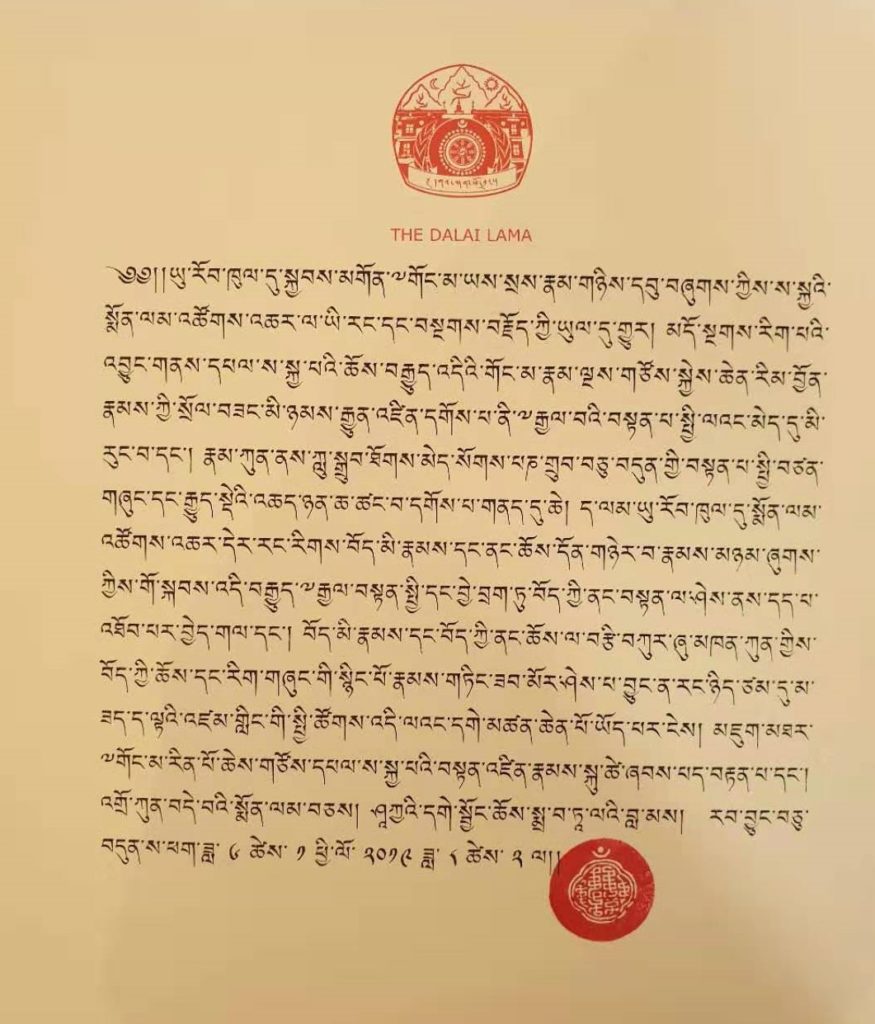 THE DALAI LAMA
༄༅། །ཡུ་རོབ་ཁུལ་དུ་སྐྱབས་མགོན་༸གོང་མ་ཡས་སྲས་རྣམ་གཉིས་དབུ་བཞུགས་ཀྱིས་ས་སྐྱའི་
སྨོན་ལམ་འཚོགས་འཆར་ལ་ཡི་རང་དང་བསྔགས་བརྗོད་ཀྱི་ཡུལ་དུ་གྱུར། མདོ་སྔགས་རིག་པའི་
འབྱུང་གནས་དཔལ་ས་སྐྱ་པའི་ཆོས་བརྒྱུད་འདིའི་གོང་མ་རྣམ་ལྔས་གཙོས་སྐྱེས་ཆེན་རིམ་བྱོན་
རྣམས་ཀྱི་སྲོལ་བཟང་མི་ཉམས་རྒྱུན་འཛིན་དགོས་པ་ནི་༸རྒྱལ་བའི་བསྟན་པ་སྤྱི་ལའང་མེད་དུ་མི་
རུང་བ་དང་། རྣམ་ཀུན་ནས་ཀླུ་སྒྲུབ་ཐོགས་མེད་སོགས་པཎ་གྲུབ་བཅུ་བདུན་གྱི་བསྟན་པ་སྤྱི་བཙན་
གཞུང་དང་རྒྱུད་སྡེའི་འཆད་ཉན་ཆ་ཚང་བ་དགོས་པ་གནད་དུ་ཆེ། ད་ལམ་ཡུ་རོབ་ཁུལ་དུ་སྨོན་ལམ་
འཚོགས་འཆར་དེར་རང་རིགས་བོད་མི་རྣམས་དང་ནང་ཆོས་དོན་གཉེར་བ་རྣམས་མཉམ་ཞུགས་
ཀྱིས་གོ་སྐབས་འདི་བརྒྱུད་༸རྒྱལ་བསྟན་སྤྱི་དང་བྱེ་བྲག་ཏུ་བོད་ཀྱི་ནང་བསྟན་ལ་ཤེས་ནས་དད་པ་
འཐོབ་པར་བྱེད་གལ་དང་། བོད་མི་རྣམས་དང་བོད་ཀྱི་ནང་ཆོས་ལ་བརྩི་བཀུར་ཞུ་མཁན་ཀུན་གྱིས་
བོད་ཀྱི་ཆོས་དང་རིག་གཞུང་གི་སྙིང་པོ་རྣམས་གཏིང་ཟབ་མོར་ཤེས་པ་བྱུང་ན་རང་ཉིད་ཙམ་དུ་མ་
ཟད་ད་ལྟའི་འཛམ་གླིང་གི་སྤྱི་ཚོགས་འདི་ལའང་དགེ་མཚན་ཆེན་པོ་ཡོད་པར་ངེས། མཇུག་མཐར་
༸གོང་མ་རིན་པོ་ཆེས་གཙོས་དཔལ་ས་སྐྱ་པའི་བསྟན་འཛིན་རྣམས་སྐུ་ཚེ་ཞབས་པད་བརྟན་པ་དང་།
འགྲོ་ཀུན་བདེ་བའི་སྨོན་ལམ་བཅས། ཤཱཀྱའི་དགེ་སློང་ཆོས་སྨྲ་བ་ཏཱ་ལའི་བླ་མས། རབ་བྱུང་བཅུ་
བདུན་ས་ཕག་ཟླ་ ༦ ཚེས་ ༡ ཕྱི་ལོ་ ༢༠༡༩ ཟླ་ ༨ ཚེས་ ༢ ལ། །